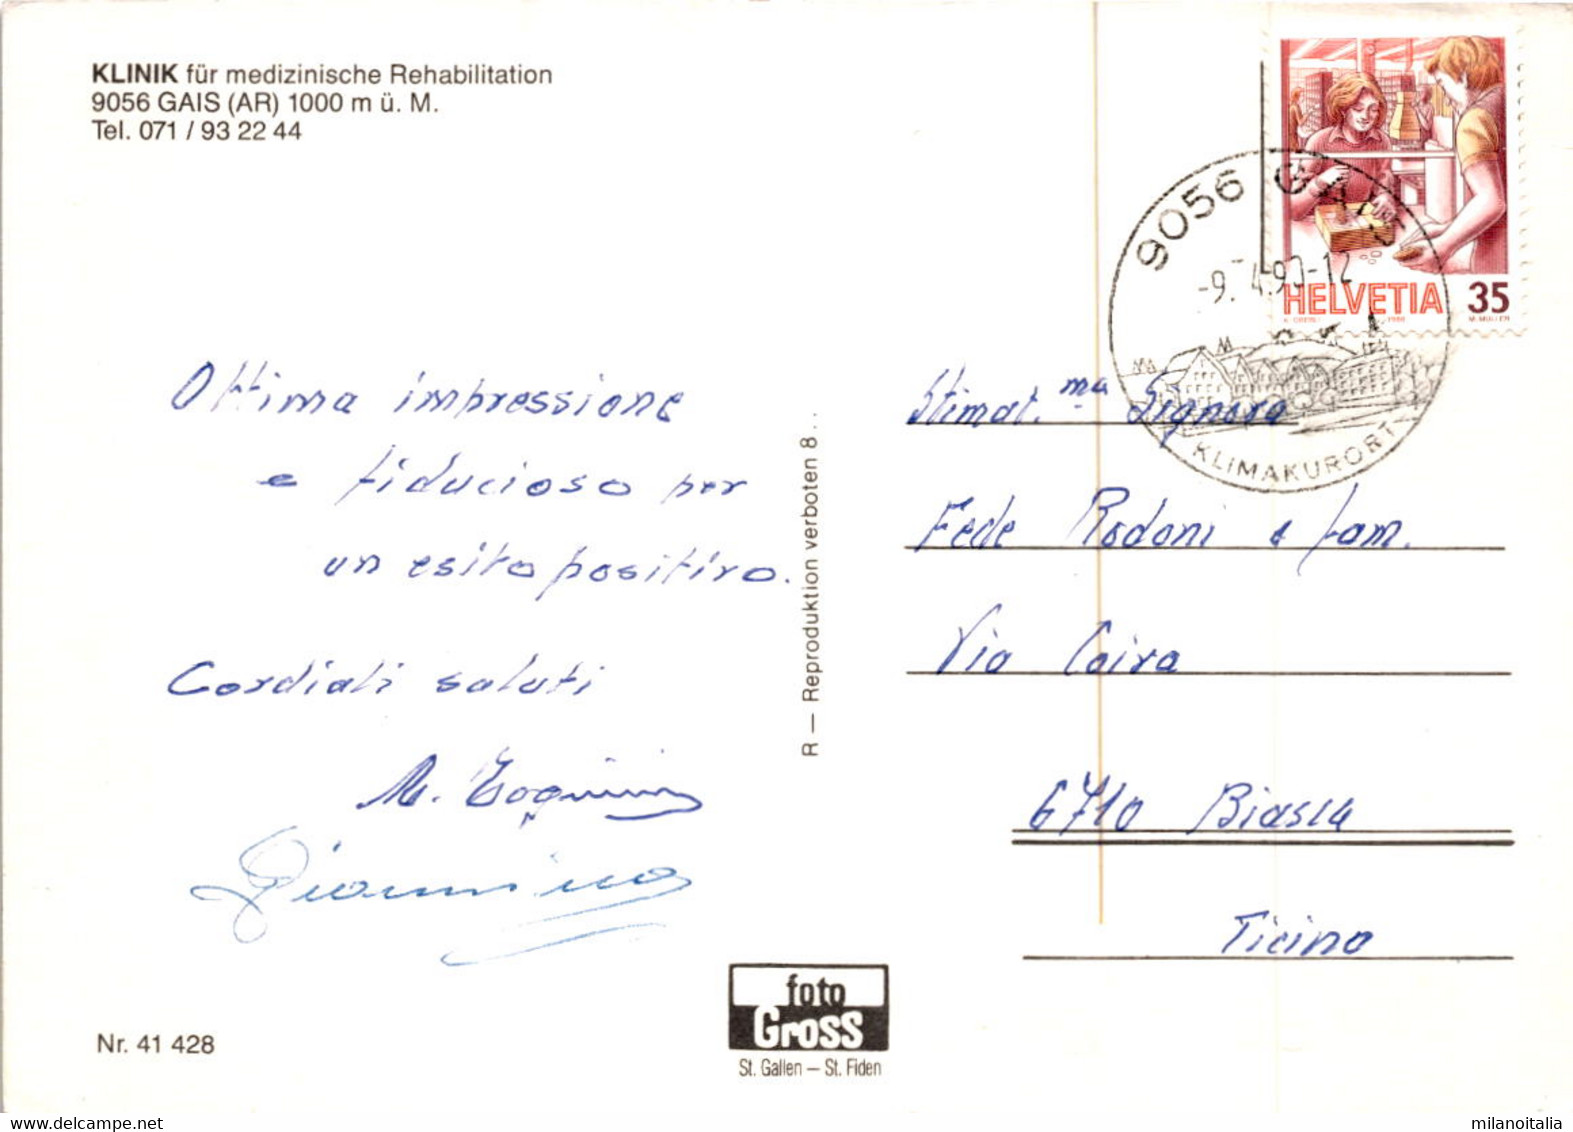 KLINIK für medizinische Rehabilitation
9056 GAIS (AR) 1000 m ü. M.
Tel. 071 / 93 22 44
Ottima impressione
e fiducioso per
un esito positivo.
Cordiali saluti
M.
Giannina
Nr. 41 428
R — Reproduktion verboten 8..
foto
Gross
St. Gallen – St. Fiden
HELVETIA 35
1986 M. MÜLLER
9056 GAIS
-9.-4.90-12
KLIMAKURORT
Stimat.ma Signora
Fede Rodoni e fam.
Via Coira
6710 Biasca
Ticino
milanoitalia